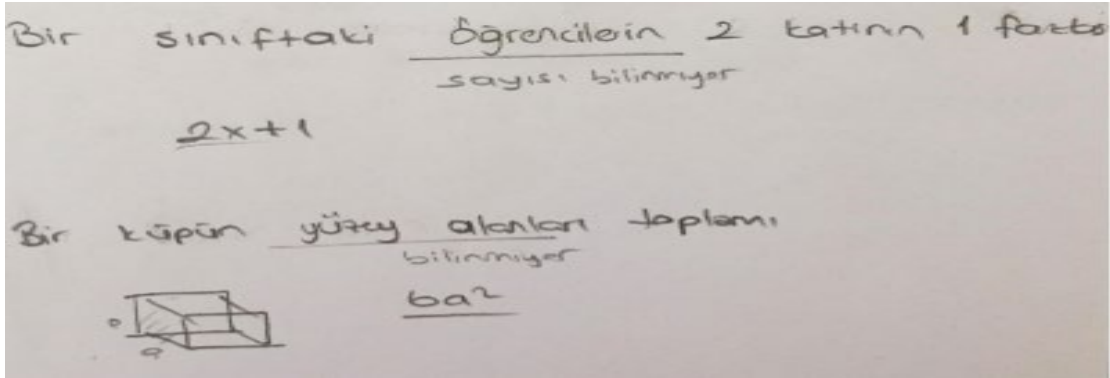 Bir sınıftaki öğrencilerin 2 katının 1 fazla
sayısı bilinmiyor
2x+1
Bir küpün yüzey alanları toplamı
bilinmiyor
6a²
a
a